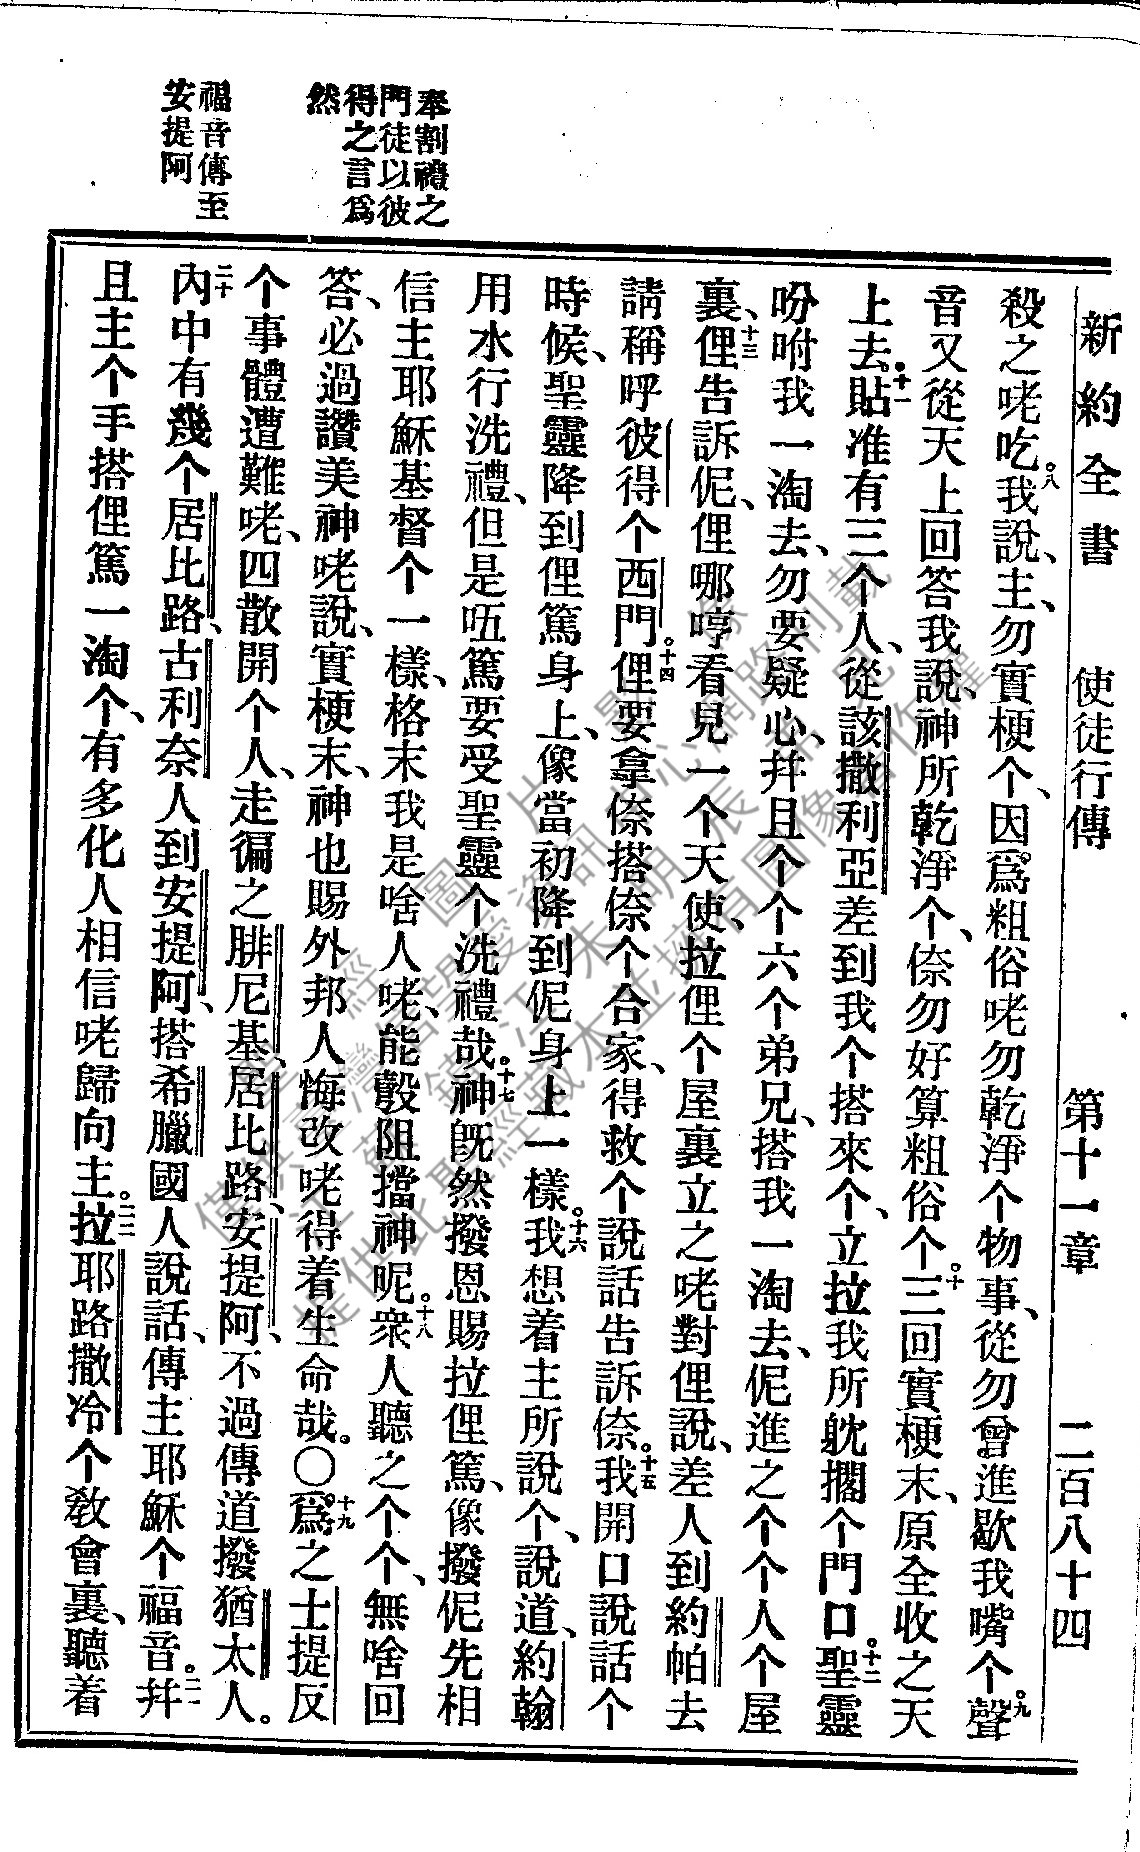 新約全書 使徒行傳 第十一章 二百八十四
殺之咾吃。八我說、主、勿實梗个、因爲粗俗咾勿乾淨个物事、從勿曾進歇我嘴个。九聲
音又從天上回答我說、神所乾淨个、倷勿好算粗俗个。十三回實梗末、原全收之天
上去。十一貼准有三个人、從該撒利亞差到我个搭來个、立拉我所躭擱个門口。十二聖靈
吩咐我一淘去、勿要疑心、幷且个个六个弟兄、搭我一淘去、伲進之个个人个屋
裏、十三俚告訴伲、俚哪哼看見一个天使、拉俚个屋裏立之咾對俚說、差人到約帕去
請稱呼彼得个西門。十四俚要拿倷搭倷个合家、得救个說話告訴倷。十五我開口說話个
時候、聖靈降到俚篤身上、像當初降到伲身上一樣。十六我想着主所說个、說道、約翰
用水行洗禮、但是㕶篤要受聖靈个洗禮哉。十七神旣然撥恩賜拉俚篤、像撥伲先相
信主耶穌基督个一樣、格末我是啥人咾、能彀阻擋神呢。十八衆人聽之个个、無啥回
答、必過讚美神咾說、實梗末、神也賜外邦人悔改咾得着生命哉。〇十九爲之士提反
个事體遭難咾、四散開个人、走徧之腓尼基、居比路、安提阿、不過傳道撥猶太人。
二十內中有幾个居比路、古利奈人到安提阿、搭希臘國人說話、傳主耶穌个福音。二一幷
且主个手搭俚篤一淘个、有多化人相信咾歸向主。二二拉耶路撒冷个教會裏、聽着
奉割禮之
門徒以彼
得之言爲
然
福音傳至
安提阿